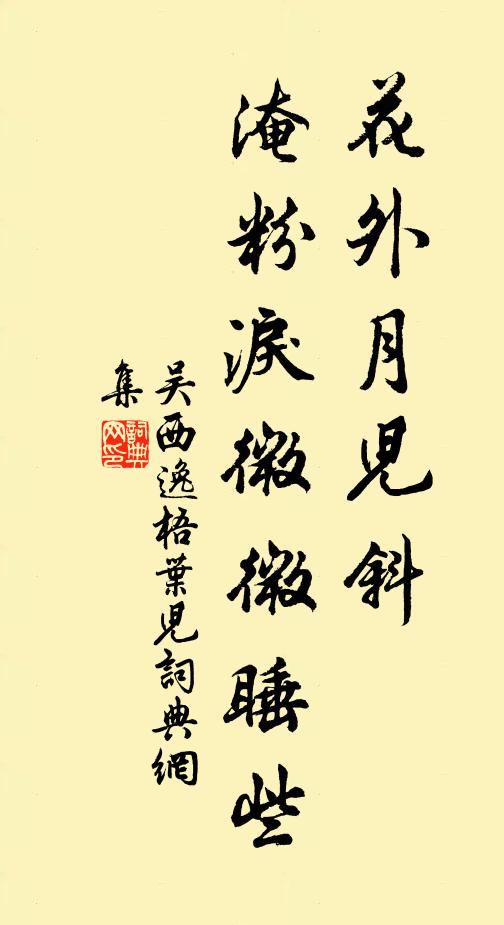 花外月兒斜
淹粉淚微微睡些
吴西逸梧葉兒詞典網
集
詞典
网印